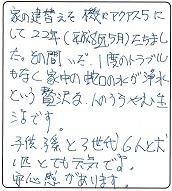 家の建替えを機にアクアス5に
して22年（平成8年5月）たちました。
その間いぞ、1度のトラブル
もなく家中の蛇口の水が浄水
という贅沢な
活です。
子供、孫と3世代6人と犬
1匹とても元気です。
安心感があります。